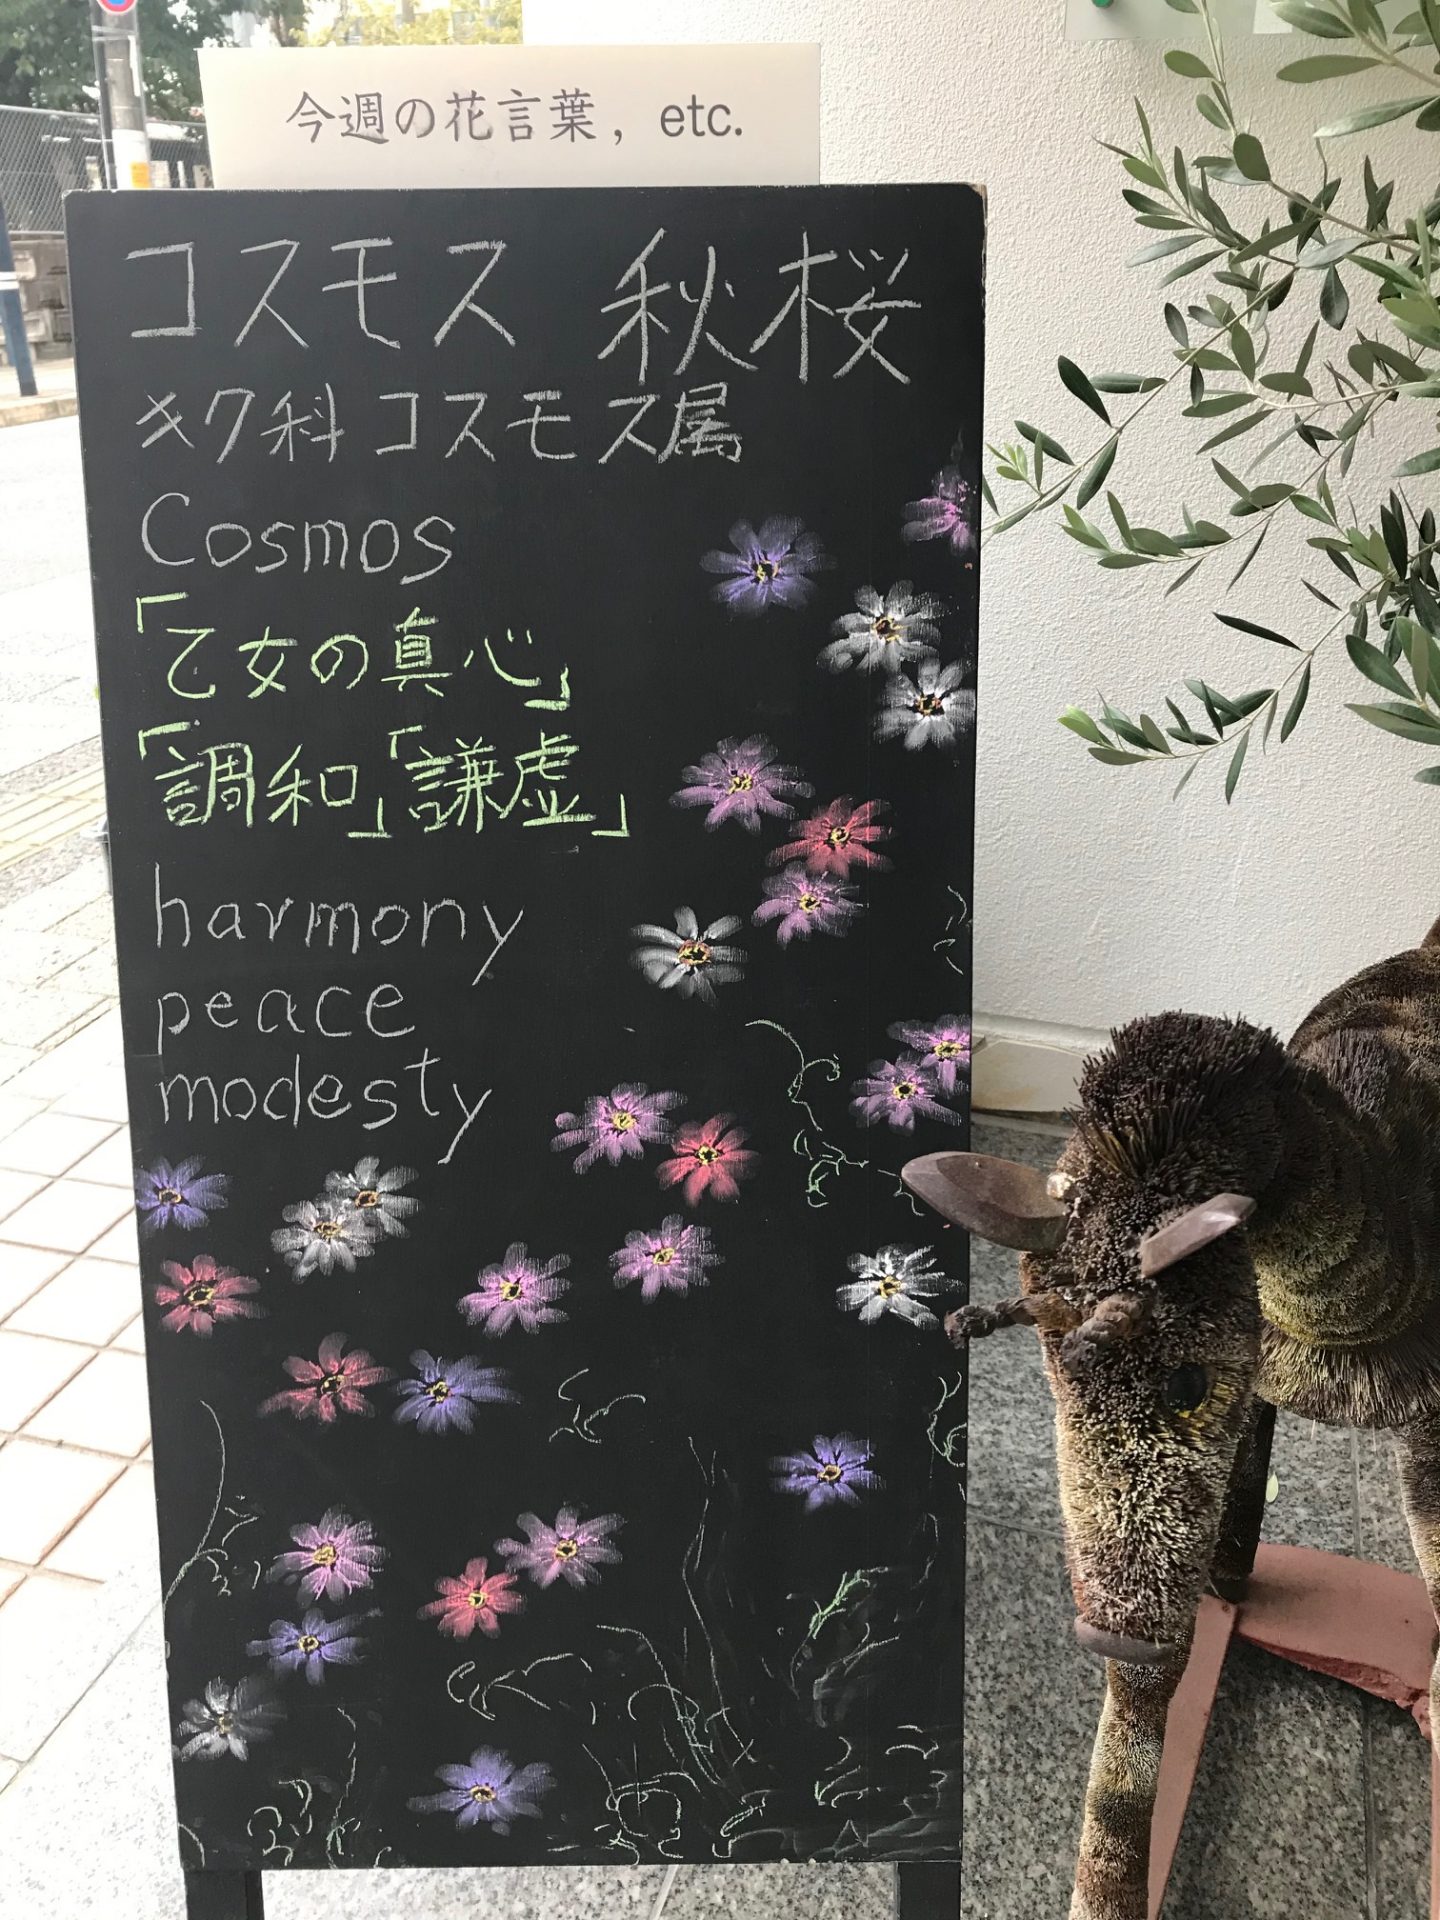 今週の花言葉, etc.
コスモス 秋桜
キク科 コスモス属
Cosmos
「乙女の真心」
「調和」「謙虚」
harmony
peace
modesty